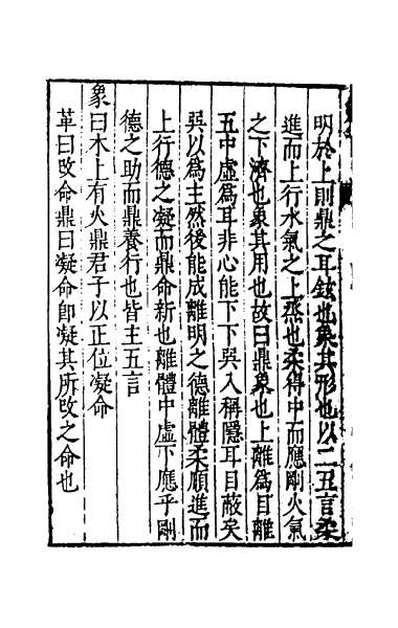 明於上則鼎之耳鉉也象其形也以二五言柔
進而上行水氣之上烝也柔得中而應剛火氣
之下濟也象其用也故曰鼎象也上離為目離
五中虛為耳非心能下下巽入稱隱耳目蔽矣
巽以為主然後能成離明之德離體柔順進而
上行德之凝而鼎命新也離體中虛下應乎剛
德之助而鼎養行也皆主五言
象曰木上有火鼎君子以正位凝命
革曰改命鼎曰凝命即凝其所改之命也